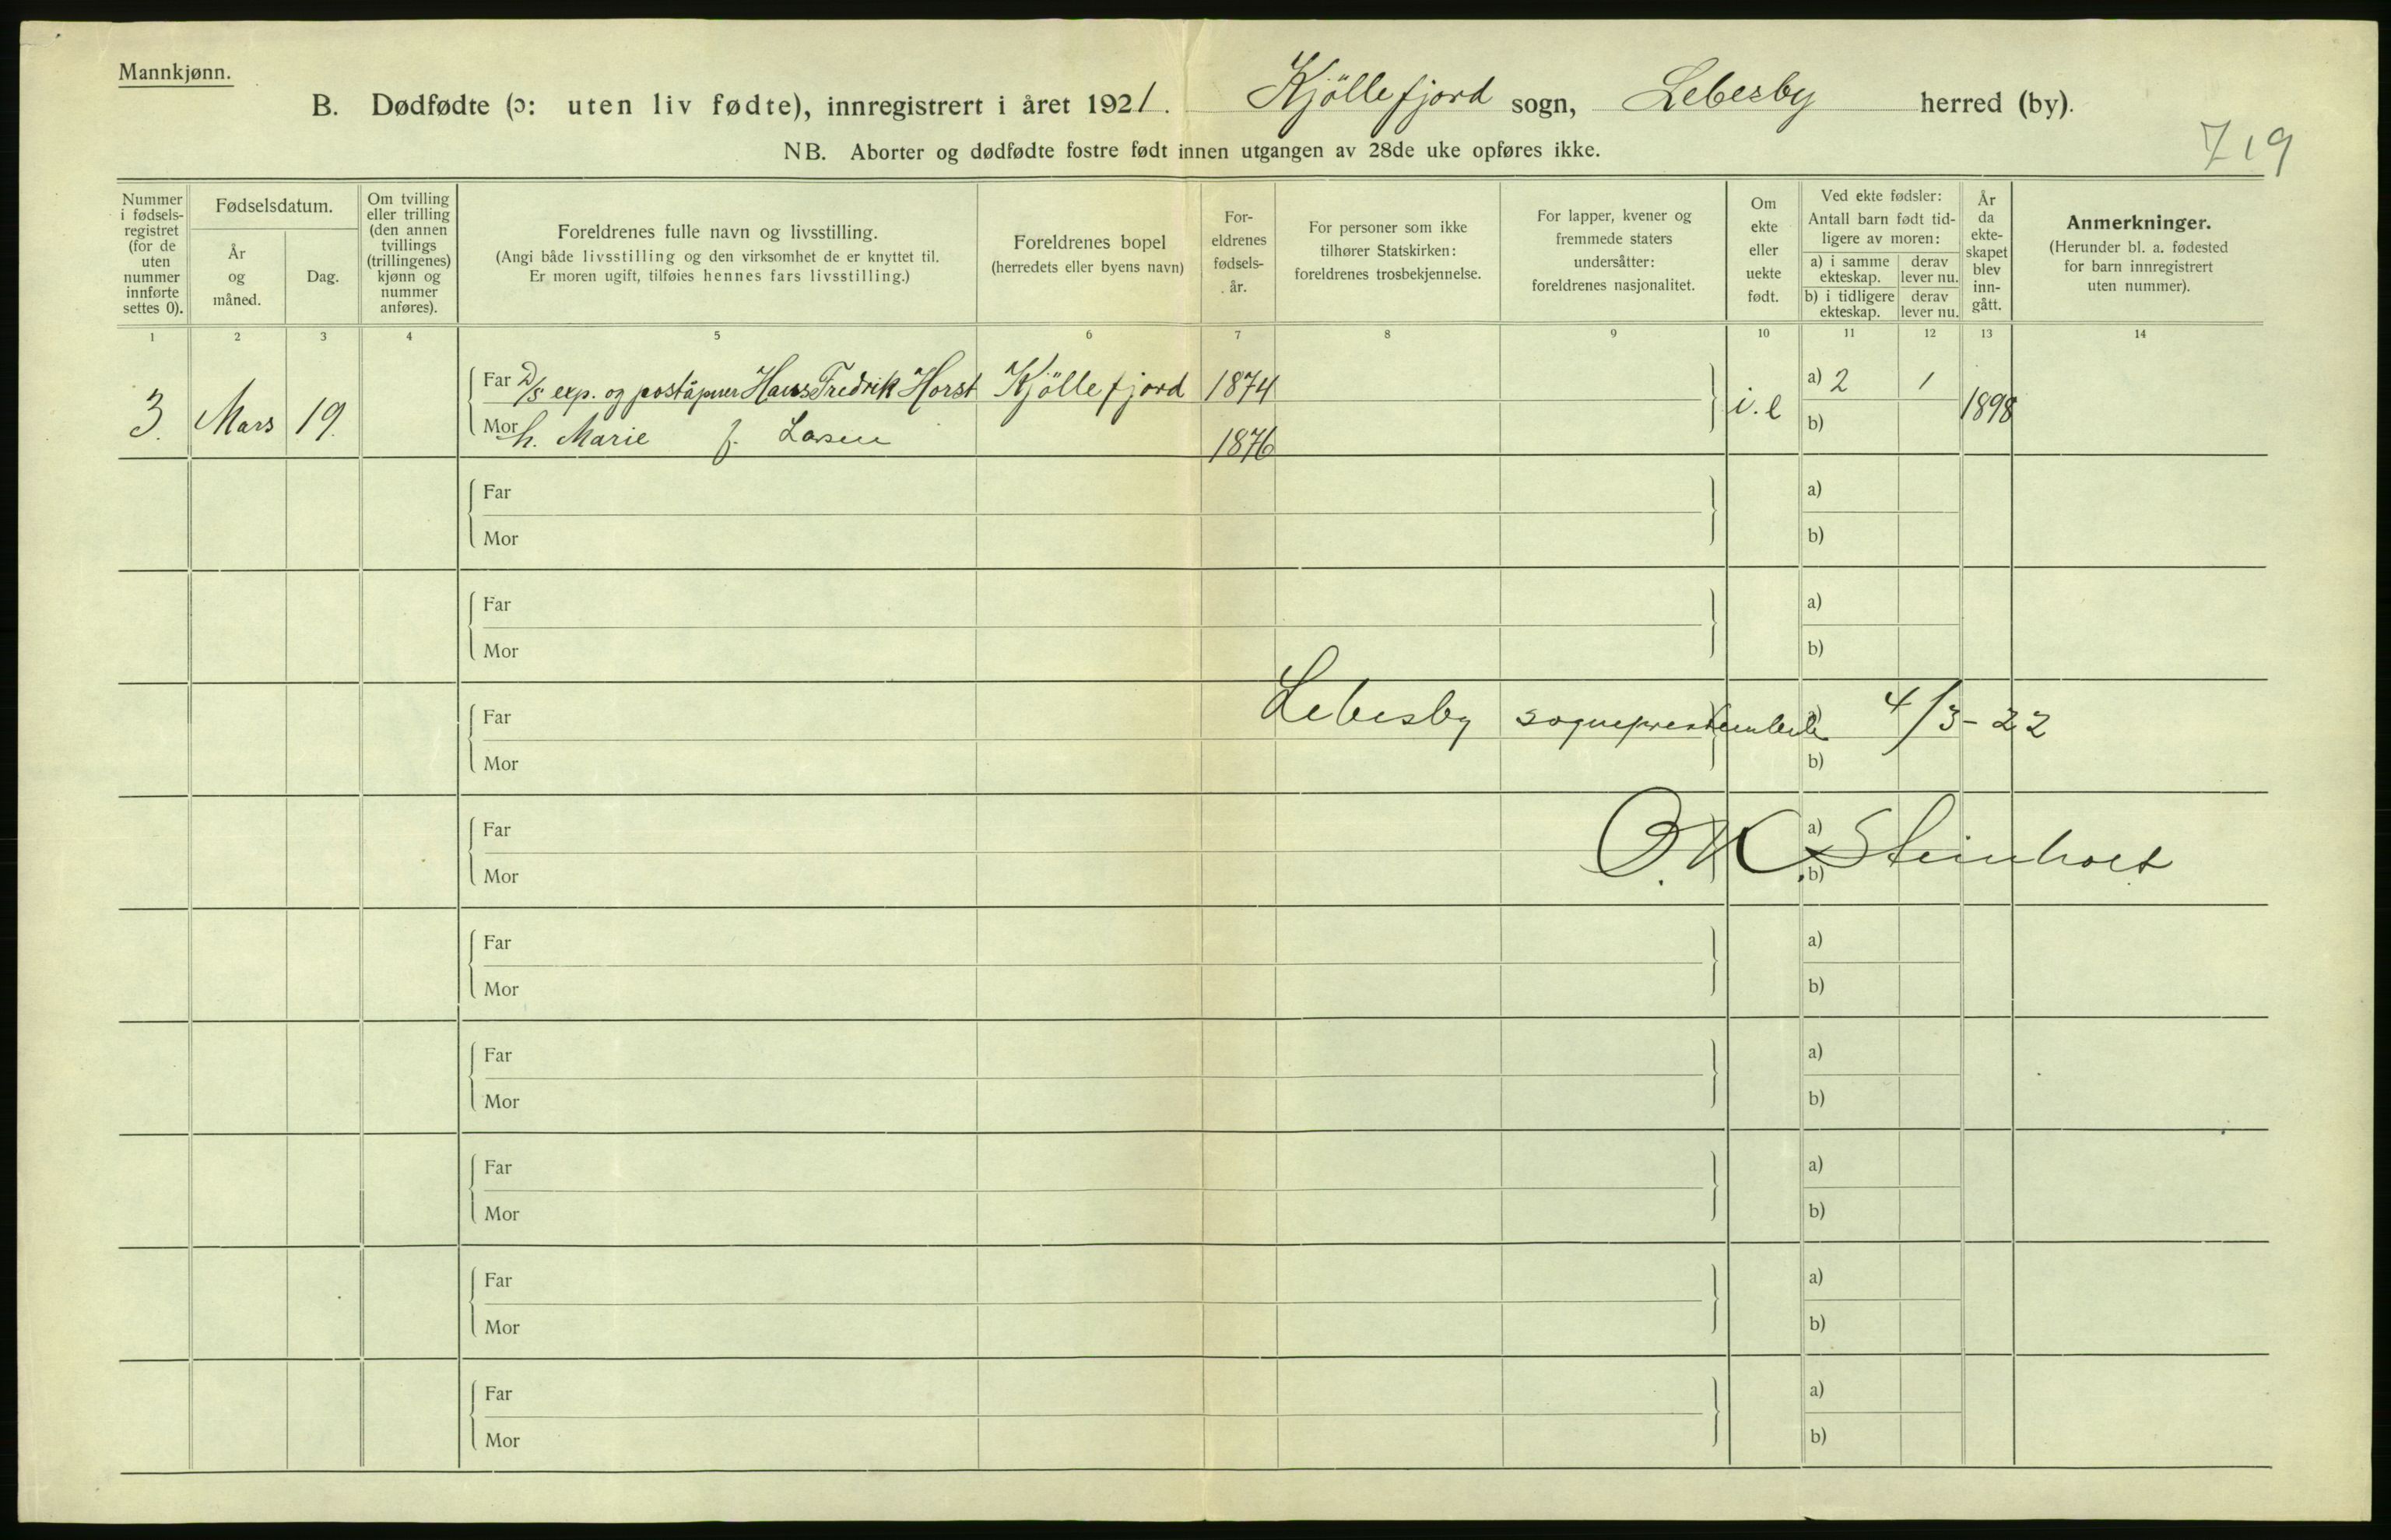 Mannkjønn.
B. Dødfødte (ɔ: uten liv fødte), innregistrert i året 1921. Kjöllefjord sogn, Lebesby herred (by).
719
NB. Aborter og dødfødte fostre født innen utgangen av 28de uke opføres ikke.
Nummer i fødsels-registret (for de uten nummer innførte settes 0).
Fødselsdatum.
År og måned.
Dag.
Om tvilling eller trilling (den annen tvillings (trillingenes) kjønn og nummer anføres).
Foreldrenes fulle navn og livsstilling.
(Angi både livsstilling og den virksomhet de er knyttet til.
Er moren ugift, tilføies hennes fars livsstilling.)
Foreldrenes bopel
(herredets eller byens navn)
For-eldrenes fødsels-år.
For personer som ikke tilhører Statskirken: foreldrenes trosbekjennelse.
For lapper, kvener og fremmede staters undersåtter: foreldrenes nasjonalitet.
Om ekte eller uekte født.
Ved ekte fødsler:
Antall barn født tid-ligere av moren:
a) i samme ekteskap.
derav lever nu.
b) i tidligere ekteskap.
derav lever nu.
År da ekte-skapet blev inn-gått.
Anmerkninger.
(Herunder bl. a. fødested for barn innregistrert uten nummer).
1 2 3 4 5 6 7 8 9 10 11 12 13 14
3. Mars 19. Far D/S exp. og poståpner Hans Fredrik Horst Kjöllefjord 1874 i.e a) 2 1 1898
Mor h. Marie f. Larsen 1876 b)
Far a)
Mor b)
Far a)
Mor b)
Far Lebesby sogneprestembede a) 4/3-22
Mor b)
Far O. K. Steinholt a)
Mor b)
Far a)
Mor b)
Far a)
Mor b)
Far a)
Mor b)
Far a)
Mor b)
Far a)
Mor b)